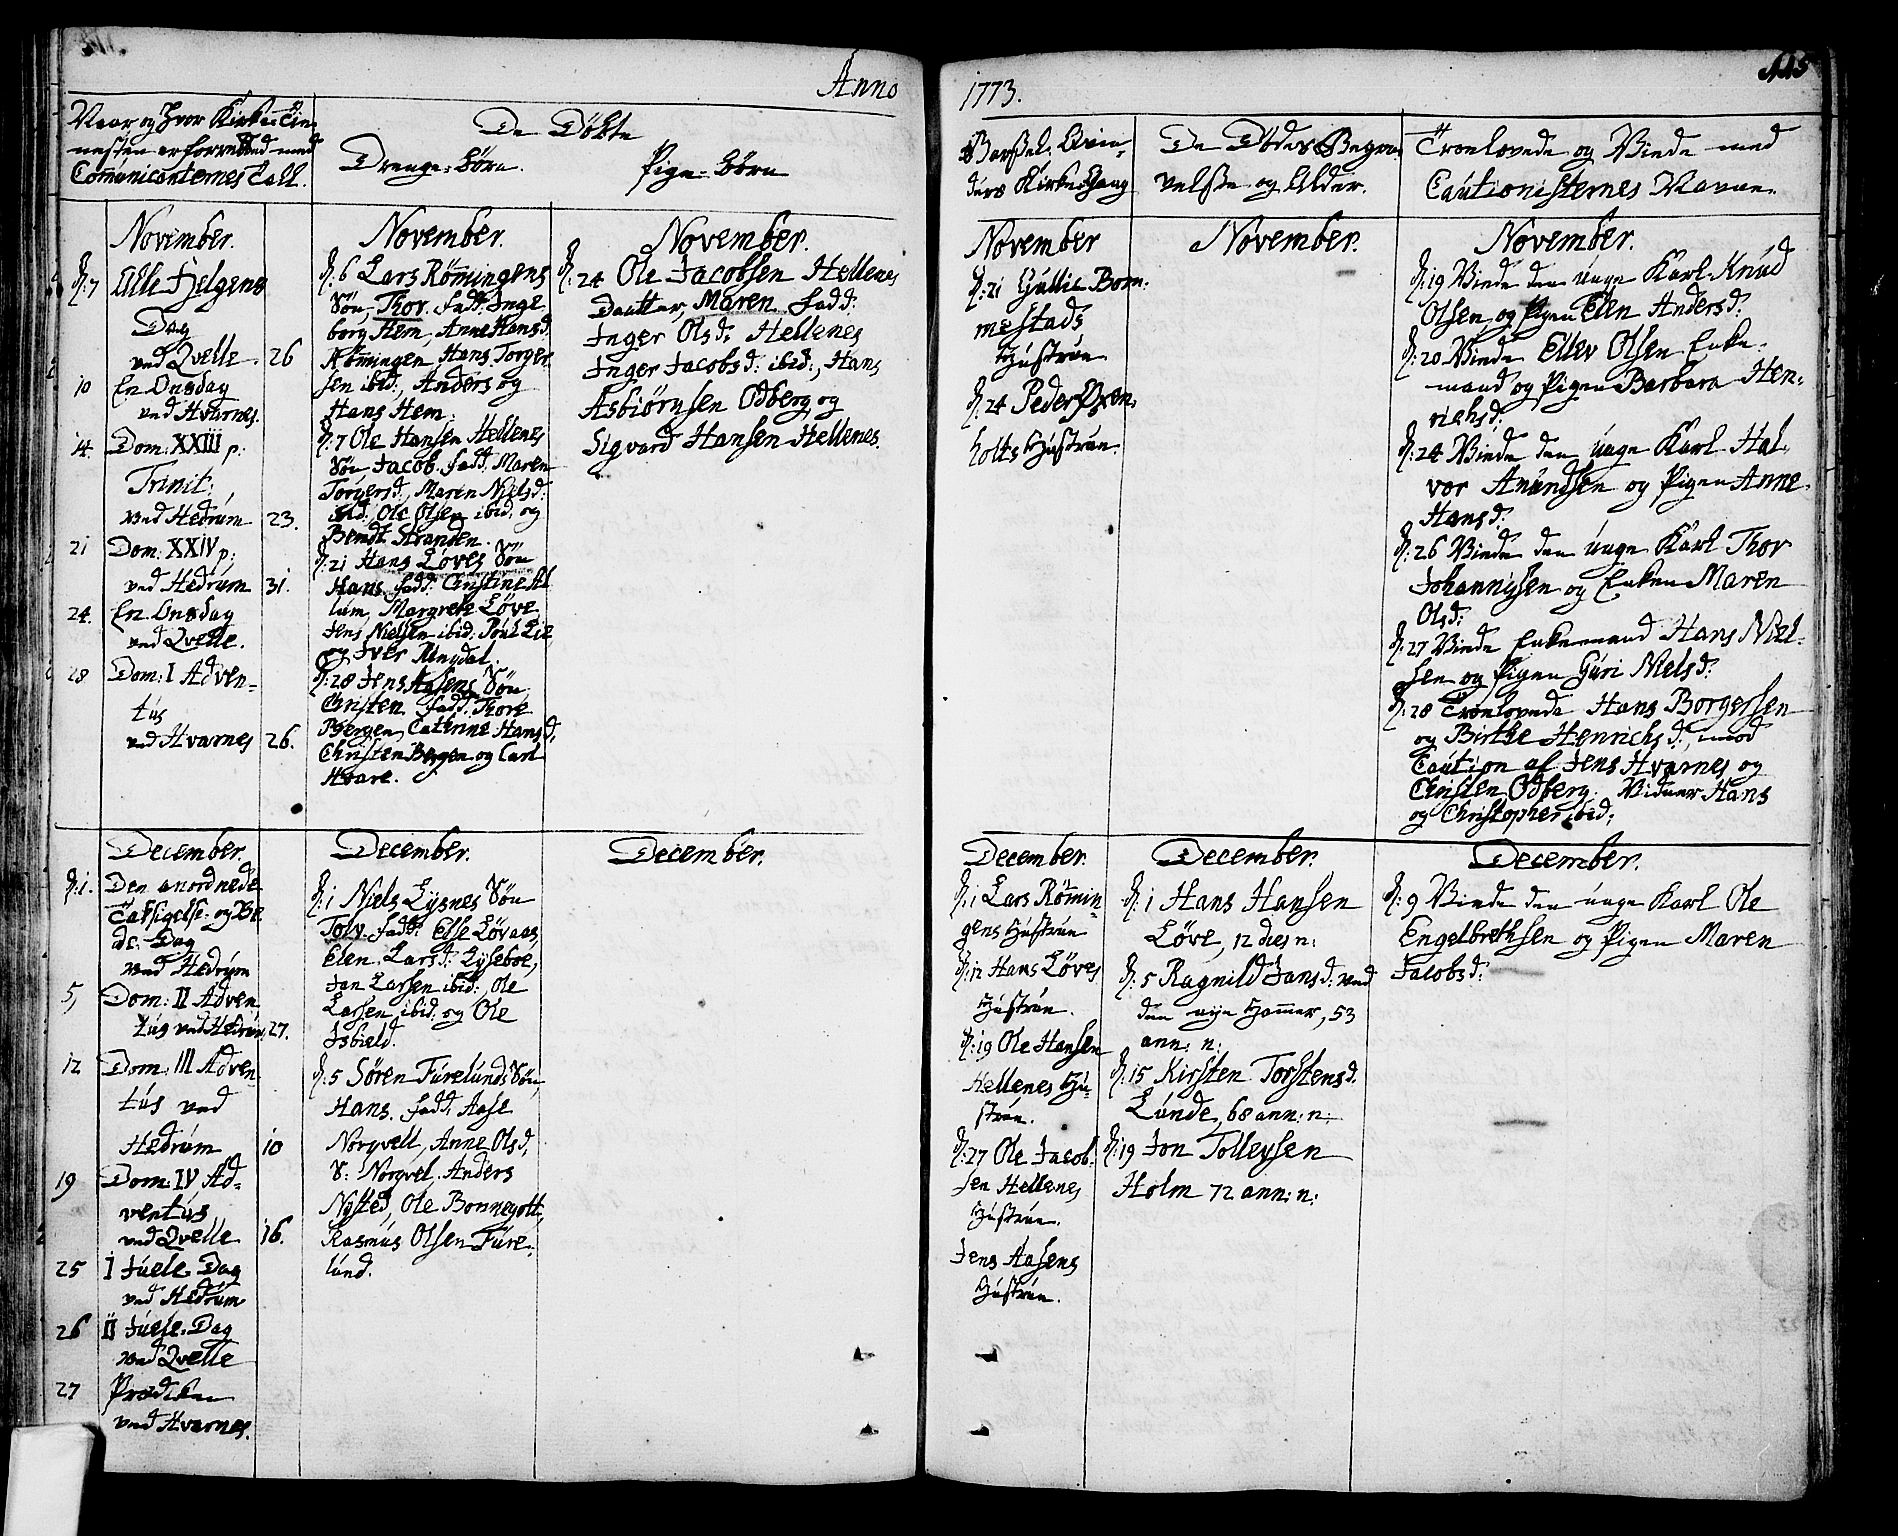 Anno
1773.
115
Naar og hvor Kirke-Tie-
nesten er forretted med
Com̅unicanternes Tall.
De Døbte
Drenge-Børn.
Pige-Børn
Barsel-Qvin-
ders Kirkegang
De Dødes Begra-
velse og Alder.
Troelovede og Viede med
Cautionisternes Navne.
November.
7 Alle Helgens
Dag
ved Qvelle. 26
10 En Onsdag
ved Hvarnes.
14. Dom: XXIII p:
Trinit:
ved Hedrum 23.
21 Dom: XXIV p:
ved Hedrum 31.
24. En Onsdag
ved Qvelle.
28 Dom: I Adven-
tus
ved Hvarnes 26.
November.
d: 6 Lars Rømingens
Søn, Thor. Fadd: Inge
borg Hem, Anne Hansd:
Rømingen, Hans Torger
sen ibid:, Anders og
Hans Hem.
d: 7 Ole Hansen Hellenes
Søn Jacob. Fadd: Maren
Torgersd:, Maren Nielsd:
ibid: Ole Olsen ibid: og
Bendt Stranden.
d: 21 Hans Løves Søn
Hans. Fadd: Christine
Margrete Løve
Jens Nielsen ibid: Poul Lie
og Iver Ringdal.
d: 28 Jens Aasens Søn
Christen. Fadd: Thore
Bergen, Catrine Hansd:,
Christen Bergen og Carl
Hvare.
November.
d: 24 Ole Jacobsen Hellenes
Daatter, Maren. Fadd:
Inger Olsd: Hellenes
Inger Jacobsd: ibid:, Hans
Asbiørnsen Odberg og
Sigvard Hansen Hellenes.
November
d: 21 Gullic Bom-
mestads
Hustrue
d: 24 Peder Øxen-
holts Hustrue.
November.
November.
d: 19 Viede den unge Karl Knud
Olsen og Pigen Elen Andersd:
d: 20 Viede Ellev Olsen Enke-
mand og Pigen Barbara Hen-
richsd:
d: 24 Viede den unge Karl Hal-
vor Amundsen og Pigen Anne
Hansd:
d: 26 Viede den unge Karl Thor
Johannissen og Enken Maren
Olsd:
d: 27 Viede Enkemand Hans Niel-
sen og Pigen Guri Nielsd:
d: 28 Troelovede Hans Borgersen
og Birthe Henrichsd:, mod
Caution af Jens Hvarnes og
Christen Odberg. Vidner Hans
og Christopher ibid:
December.
d: 1. Den anordnede
Taksigelse- og Be
de-Dag
ved Hedrum
5, Dom: II Adven
tus ved Hedrum 27.
12 Dom: III Adven
tus ved
Hedrum 10
19 Dom: IV Ad-
ventus
ved Qvelle 16.
25 I Juele-Dag
ved Hedrum
26 II Juele-Dag
ved Qvelle
27 Prædiken
ved Hvarnes.
December.
d: 1 Niels Lysnes Søn
Tolv. Fadd: Else Løvaas,
Elen Larsd: Lyseboe,
Jan Larsen ibid:, Ole
Larsen ibid: og Ole
Isbield.
d: 5 Søren Furelunds Søn,
Hans. Fadd: Aase
Norgvell, Anne Olsd:
S: Norgvel, Anders
Nysted, Ole Bonnegolt,
Rasmus Olsen Fure-
lund.
December.
December.
d: 1 Lars Rømin-
gens Hustrue
d: 12 Hans Løves
Hustrue.
d: 19 Ole Hansen
Hellenes Hu-
strue.
d: 27 Ole Jacob-
sen Hellenes
Hustrue.
Jens Aasens
Hustrue.
December.
d: 1 Hans Hansen
Løve, 12 dies n:
d: 5 Ragnild Jansd: ved
den nye Hammer, 53
ann: n:
d: 15 Kirsten Torstensd:
Lunde, 68 ann: n:
d: 19 Jon Tollevsen
Holm 72 ann: n:
December.
d: 9 Viede den unge Karl Ole
Engelbrethsen og Pigen Maren
Jacobsd: